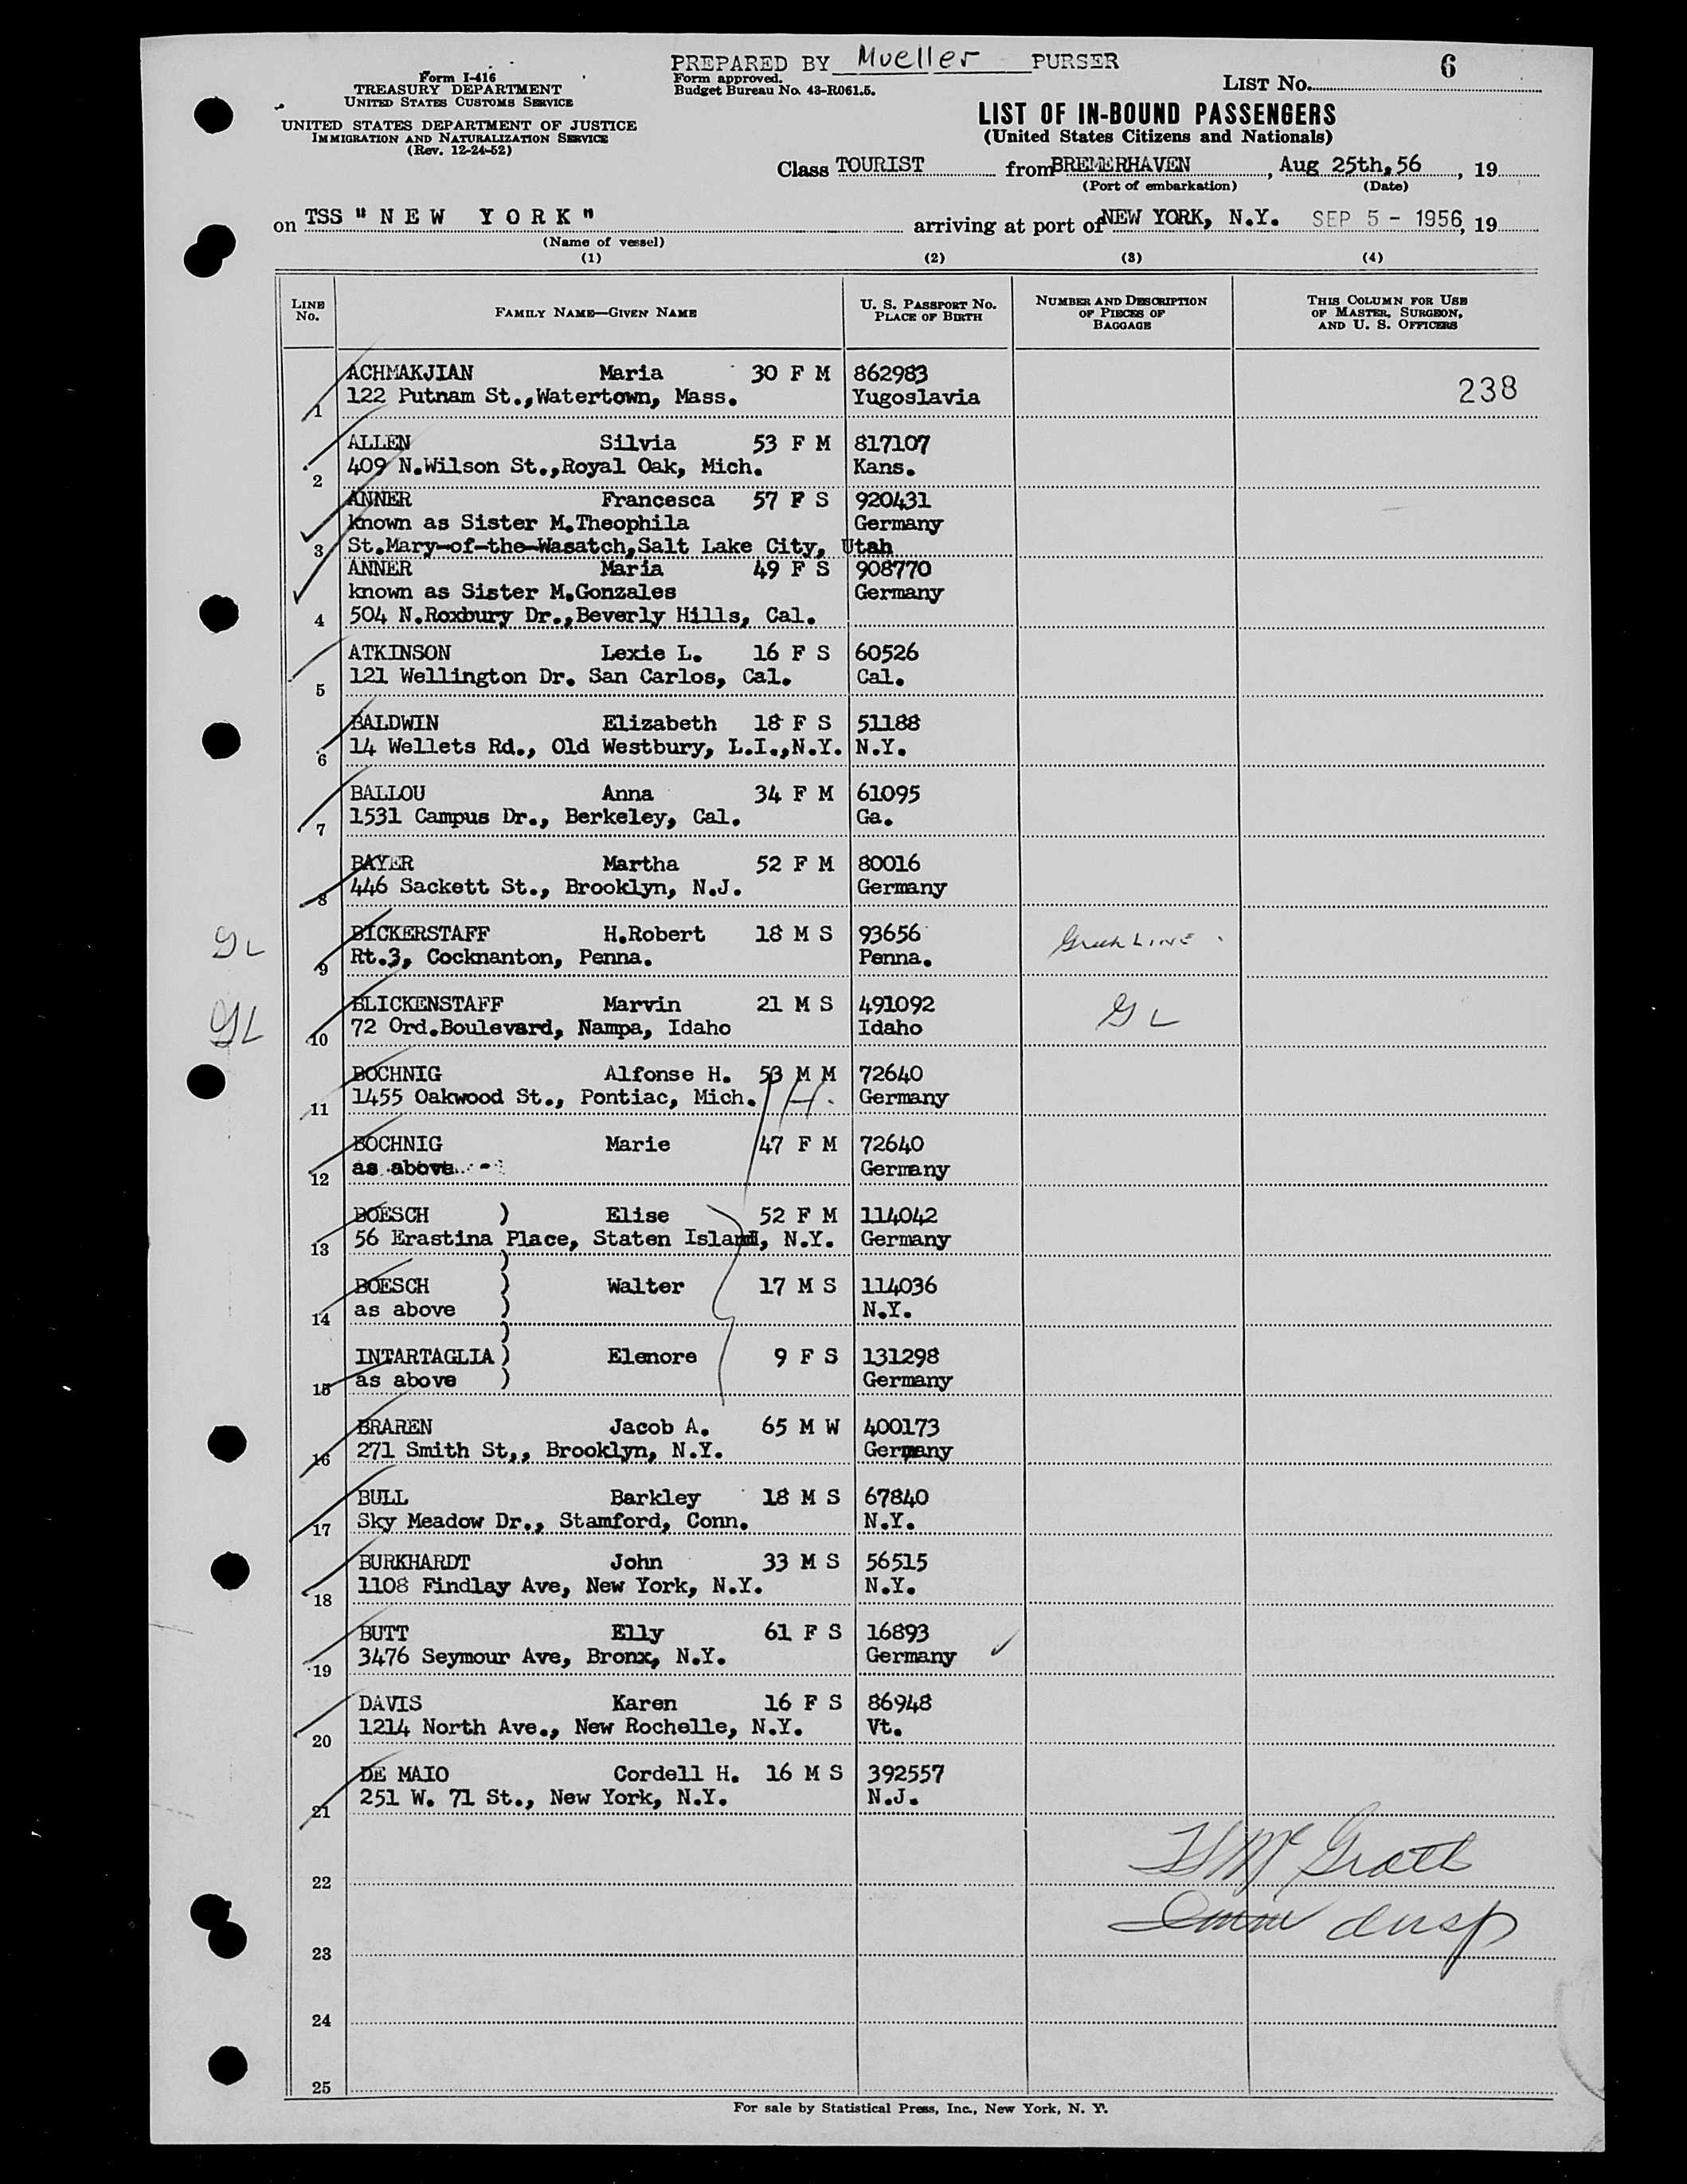 PREPARED BY Mueller PURSER
Form approved.
Budget Bureau No. 43-R061.5.
Form I-416
TREASURY DEPARTMENT
UNITED STATES CUSTOMS SERVICE
UNITED STATES DEPARTMENT OF JUSTICE
IMMIGRATION AND NATURALIZATION SERVICE
(Rev. 12-24-52)
LIST No. 6
LIST OF IN-BOUND PASSENGERS
(United States Citizens and Nationals)
Class TOURIST from BREMERHAVEN, Aug 25th, 56, 19
(Port of embarkation) (Date)
on TSS "NEW YORK" arriving at port of NEW YORK, N.Y. SEP 5 - 1956, 19
(Name of vessel)
(1) (2) (3) (4)
LINE No. FAMILY NAME—GIVEN NAME U. S. PASSPORT No. PLACE OF BIRTH NUMBER AND DESCRIPTION OF PIECES OF BAGGAGE THIS COLUMN FOR USE OF MASTER, SURGEON, AND U. S. OFFICERS
ACHMAKJIAN Maria 30 F M 862983
1 122 Putnam St.,Watertown, Mass. Yugoslavia 238
ALLEN Silvia 53 F M 817107
2 409 N.Wilson St.,Royal Oak, Mich. Kans.
ANNER Francesca 57 F S 920431
known as Sister M.Theophila Germany
3 St.Mary-of-the-Wasatch,Salt Lake City, Utah
ANNER Maria 49 F S 908770
known as Sister M.Gonzales Germany
4 504 N.Roxbury Dr.,Beverly Hills, Cal.
ATKINSON Lexie L. 16 F S 60526
5 121 Wellington Dr. San Carlos, Cal. Cal.
BALDWIN Elizabeth 18 F S 51188
6 14 Wellets Rd., Old Westbury, L.I.,N.Y. N.Y.
BALLOU Anna 34 F M 61095
7 1531 Campus Dr., Berkeley, Cal. Ga.
BAYER Martha 52 F M 80016
8 446 Sackett St., Brooklyn, N.J. Germany
GL BICKERSTAFF H.Robert 18 M S 93656 Greek LINE.
9 Rt.3, Cocknanton, Penna. Penna.
GL BLICKENSTAFF Marvin 21 M S 491092 GL
10 72 Ord.Boulevard, Nampa, Idaho Idaho
BOCHNIG Alfonse H. 53 M M 72640
11 1455 Oakwood St., Pontiac, Mich. H. Germany
BOCHNIG Marie 47 F M 72640
12 as above Germany
BOESCH ) Elise 52 F M 114042
13 56 Erastina Place, Staten Island, N.Y. Germany
)
BOESCH ) Walter 17 M S 114036
14 as above ) N.Y.
)
INTARTAGLIA ) Elenore 9 F S 131298
15 as above ) Germany
BRAREN Jacob A. 65 M W 400173
16 271 Smith St,, Brooklyn, N.Y. Germany
BULL Barkley 18 M S 67840
17 Sky Meadow Dr., Stamford, Conn. N.Y.
BURKHARDT John 33 M S 56515
18 1108 Findlay Ave, New York, N.Y. N.Y.
BUTT Elly 61 F S 16893
19 3476 Seymour Ave, Bronx, N.Y. Germany
DAVIS Karen 16 F S 86948
20 1214 North Ave., New Rochelle, N.Y. Vt.
DE MAIO Cordell H. 16 M S 392557
21 251 W. 71 St., New York, N.Y. N.J.
22 McGrath
23 Imm insp
24
25
For sale by Statistical Press, Inc., New York, N. Y.